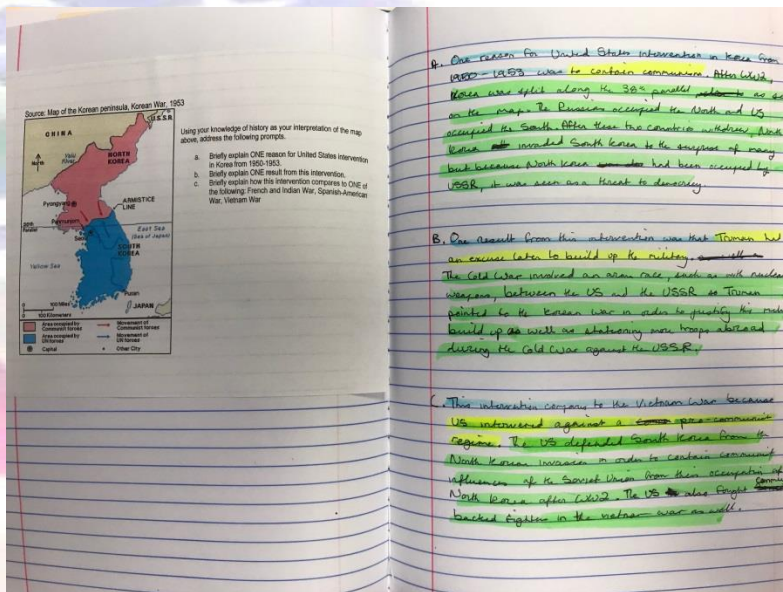 Source: Map of the Korean peninsula, Korean War, 1953
U.S.S.R
CHINA
North
Yalu
River
NORTH
KOREA
Pyongyang
ARMISTICE
LINE
Panmunjom
38th
Parallel
Seoul
East Sea
(Sea of Japan)
SOUTH
KOREA
Yellow Sea
Pusan
JAPAN
0 100 Miles
0 100 Kilometers
Area occupied by
Communist forces
Movement of
Communist forces
Area occupied by
UN forces
Movement of
UN forces
Capital
Other City
Using your knowledge of history as your interpretation of the map
above, address the following prompts.
a. Briefly explain ONE reason for United States intervention
in Korea from 1950-1953.
b. Briefly explain ONE result from this intervention.
c. Briefly explain how this intervention compares to ONE of
the following: French and Indian War, Spanish-American
War, Vietnam War
A. One reason for United States intervention in Korea from
1950-1953 was to contain communism. After WW2,
Korea was split along the 38th parallel as
on the map. The Russians occupied the North and US
occupied the South. After these two countries withdrew,
Korea invaded South Korea to the surprise of many
but because North Korea had been occupied by
USSR, it was seen as a threat to democracy.
B. One result from this intervention was that Truman had
an excuse later to build up the military.
The Cold War involved an arms race, such as with nuclear
weapons, between the US and the USSR so Truman
pointed to the Korean war in order to justify this
build up as well as stationing more troops abroad
during the Cold War against the USSR.
C. This intervention compares to the Vietnam War because
US intervened against a pro communist
regime. The US defended South Korea from the
North Korean invasion in order to contain communist
influences of the Soviet Union from their occupation of
North Korea after WW2. The US also fought
backed fighters in the vietnam war as well.